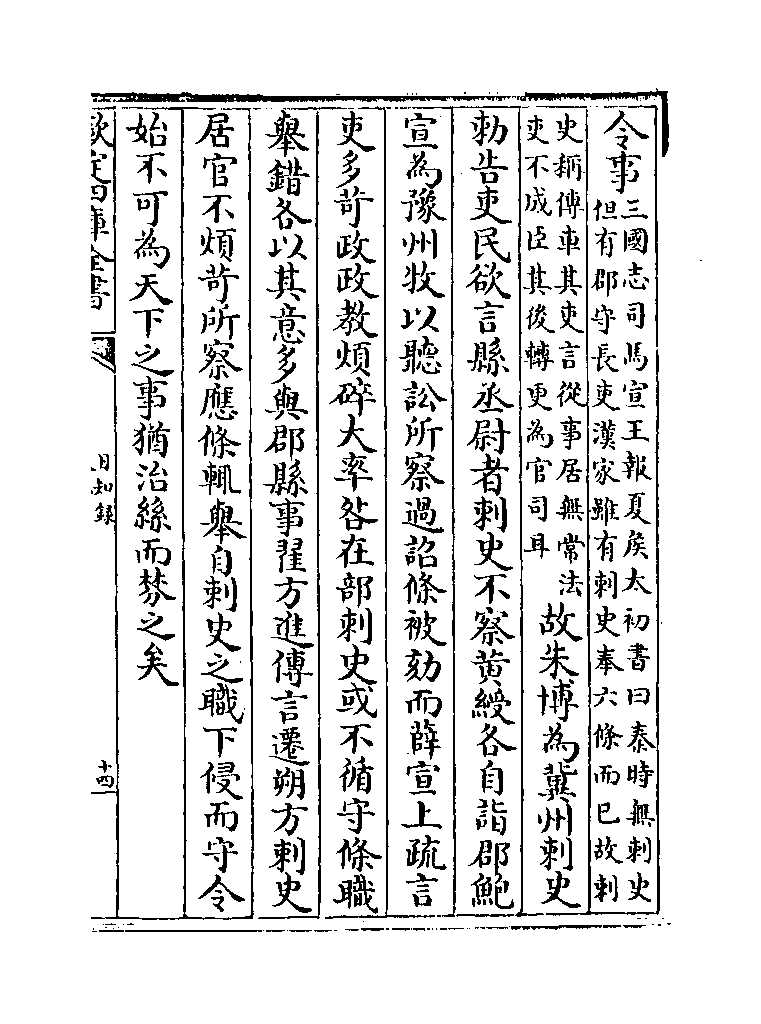 令事三國志司馬宣王報夏侯太初書曰秦時無刺史
但有郡守長吏漢家雖有刺史奉六條而已故刺
史稱傳車其吏言從事居無常法
吏不成臣其後轉更為官司耳故朱博為冀州刺史
勑告吏民欲言縣丞尉者刺史不察黄綬各自詣郡鮑
宣為豫州牧以聽訟所察過詔條被劾而薛宣上疏言
吏多苛政政教煩碎大率咎在部刺史或不循守條職
舉錯各以其意多與郡縣事翟方進傳言遷朔方刺史
居官不煩苛所察應條輒舉自刺史之職下侵而守令
始不可為天下之事猶治絲而棼之矣
欽定四庫全書
日知録
十四